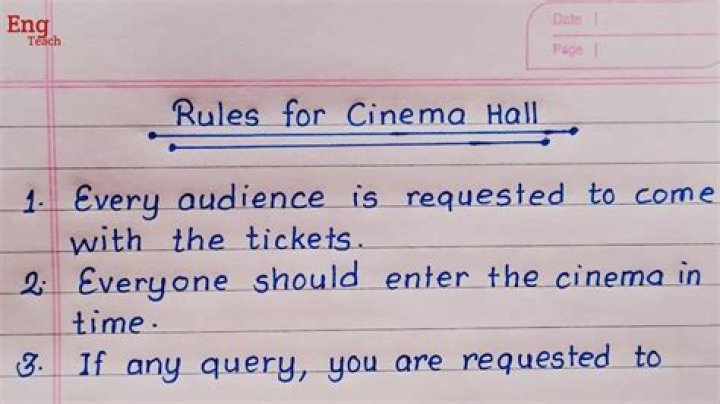 Eng
Teach
Date
Page
Rules for Cinema Hall
1. Every audience is requested to come
with the tickets.
2. Everyone should enter the cinema in
time.
3. If any query, you are requested to